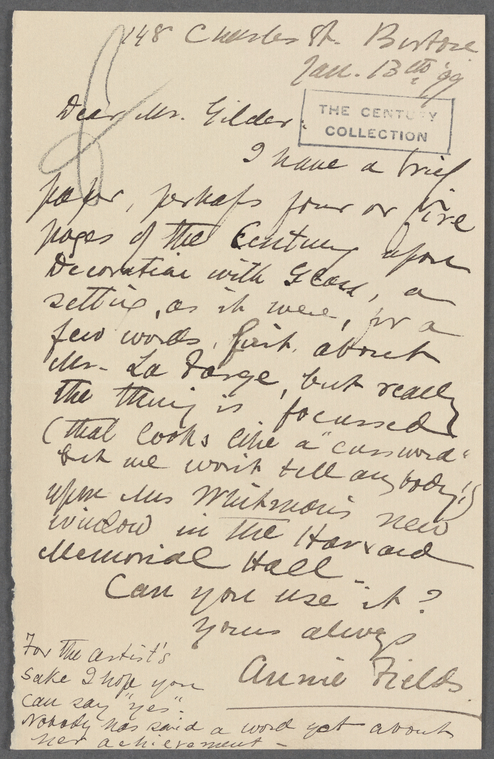 148 Charles St. Boston
Jan. 13th '99
Dear Mr. Gilder:
THE CENTURY
COLLECTION
I have a brief
paper, perhaps four or five
pages of the Century upon
Decoration with Glass, a
setting, as it were, for a
few words, first, about
Mr. La Farge, but really
the thing is focussed
(that looks like a "cussword"
but we won't tell anybody!!)
upon Mrs Whitman's new
window in the Harvard
Memorial Hall.
Can you use it?
Yours always
Annie Fields.
For the artist's
sake I hope you
can say "yes".
Nobody has said a word yet about
her achievement -